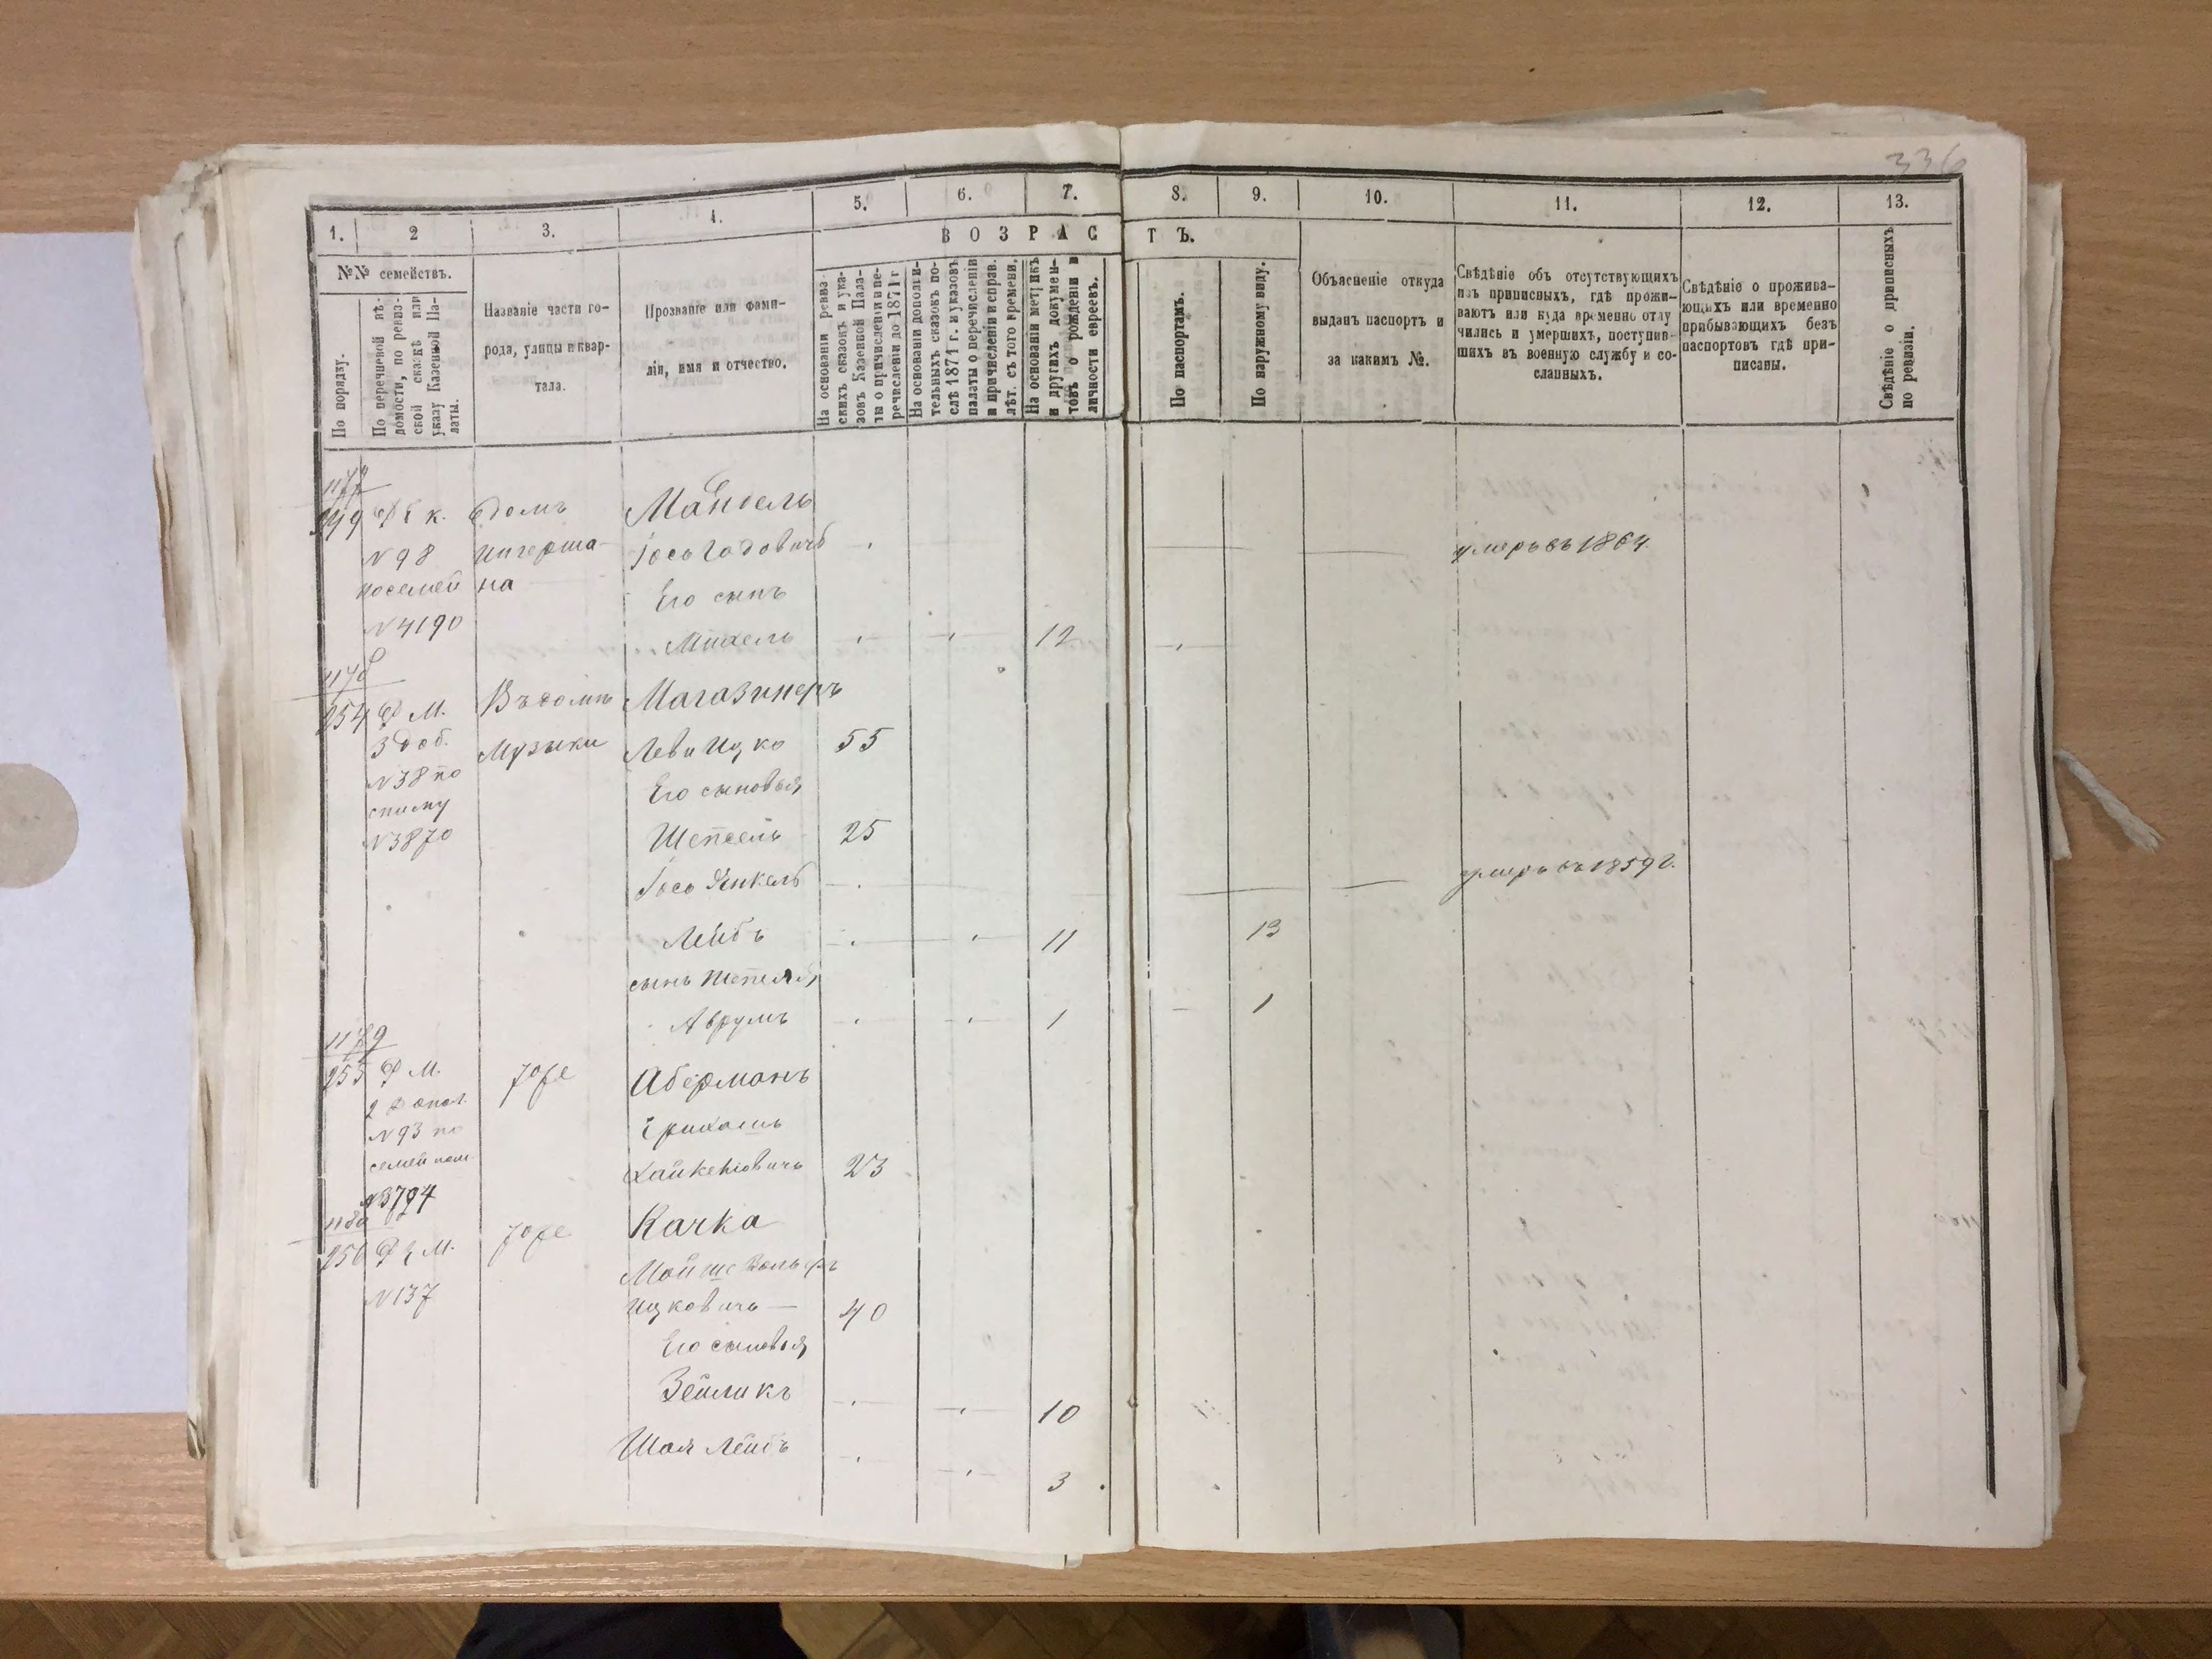 336
1. 2 3. 4. 5. 6. 7. 8. 9. 10. 11. 12. 13.
ВОЗРАСТЪ.
№№ семействъ.
По порядку.
По перечневой вѣ-
домости, по ревиз-
ской сказкѣ или
указу Казенной Па-
латы.
Названіе части го-
рода, улицы и квар-
тала.
Прозваніе или фами-
лія, имя и отчество.
На основаніи ревиз-
скихъ сказокъ и ука-
зовъ Казенной Пала-
ты о причисленіи и пе-
речисленіи до 1871 г
На основаніи дополни-
тельныхъ сказокъ по-
слѣ 1871 г. и указовъ
палаты о перечисленіи
и причисленіи и справ.
лѣт. съ того времени.
На основаніи метрикъ
и другихъ докумен-
товъ о рожденіи и
личности евреевъ.
По паспортамъ.
По наружному виду.
Объясненіе откуда
выданъ паспортъ и
за какимъ №.
Свѣдѣніе объ отсутствующихъ
изъ приписныхъ, гдѣ прожи-
ваютъ или куда временно отлу
чились и умершихъ, поступив-
шихъ въ военную службу и со-
сланныхъ.
Свѣдѣніе о прожива-
ющихъ или временно
прибывающихъ безъ
паспортовъ гдѣ при-
писаны.
Свѣдѣніе о приписныхъ
по ревизіи.
домъ Мандель
№98 Іось Годовичъ умеръ въ 1864.
посемей на Его сынъ
№4190 Михель 12
1178
254 М. Въ домѣ Магазинеръ
3 доб. Музыки Леви Ицко 55
№38 по Его сыновья
списку
№3870 Шепсель 25
Іось Янкель умеръ въ 1859 г.
Лейбъ 11 13
сынъ Шепселя
Аврумъ 1 1
1179
255 М. тоже Аберманъ
2 допол.
№93 по Ерихамъ
Хайкелiовичъ 23
№3794
1180
256 М. тоже Качка
Мойше Вольфъ
№137 Ицковичъ 40
Его сыновья
Зейликъ 10
Шая Лейбъ 3